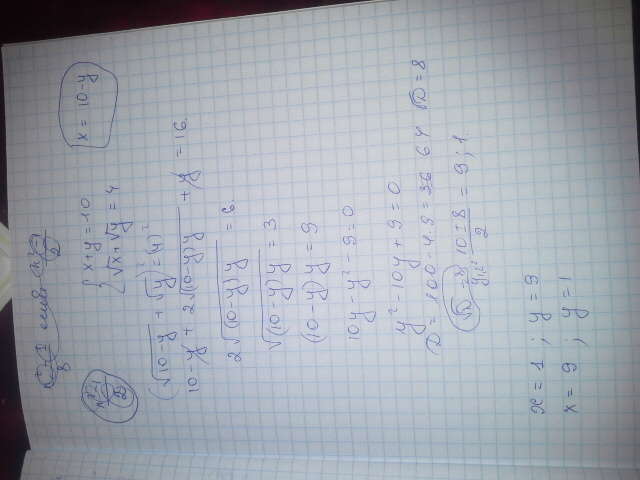 x + y = 10
√x + √y = 4
x = 10 - y
(√(10-y) + √y)² = (4)²
10 - y + 2√((10-y)y) + y = 16.
2√((10-y)y) = 6.
√((10-y)y) = 3
(10-y)y = 9
10y - y² - 9 = 0
y² - 10y + 9 = 0
D = 100 - 4·9 = 36 64 √D = 8
y₁,₂ = (10 ± 8)/2 = 9 ; 1.
x = 1 ; y = 9
x = 9 ; y = 1